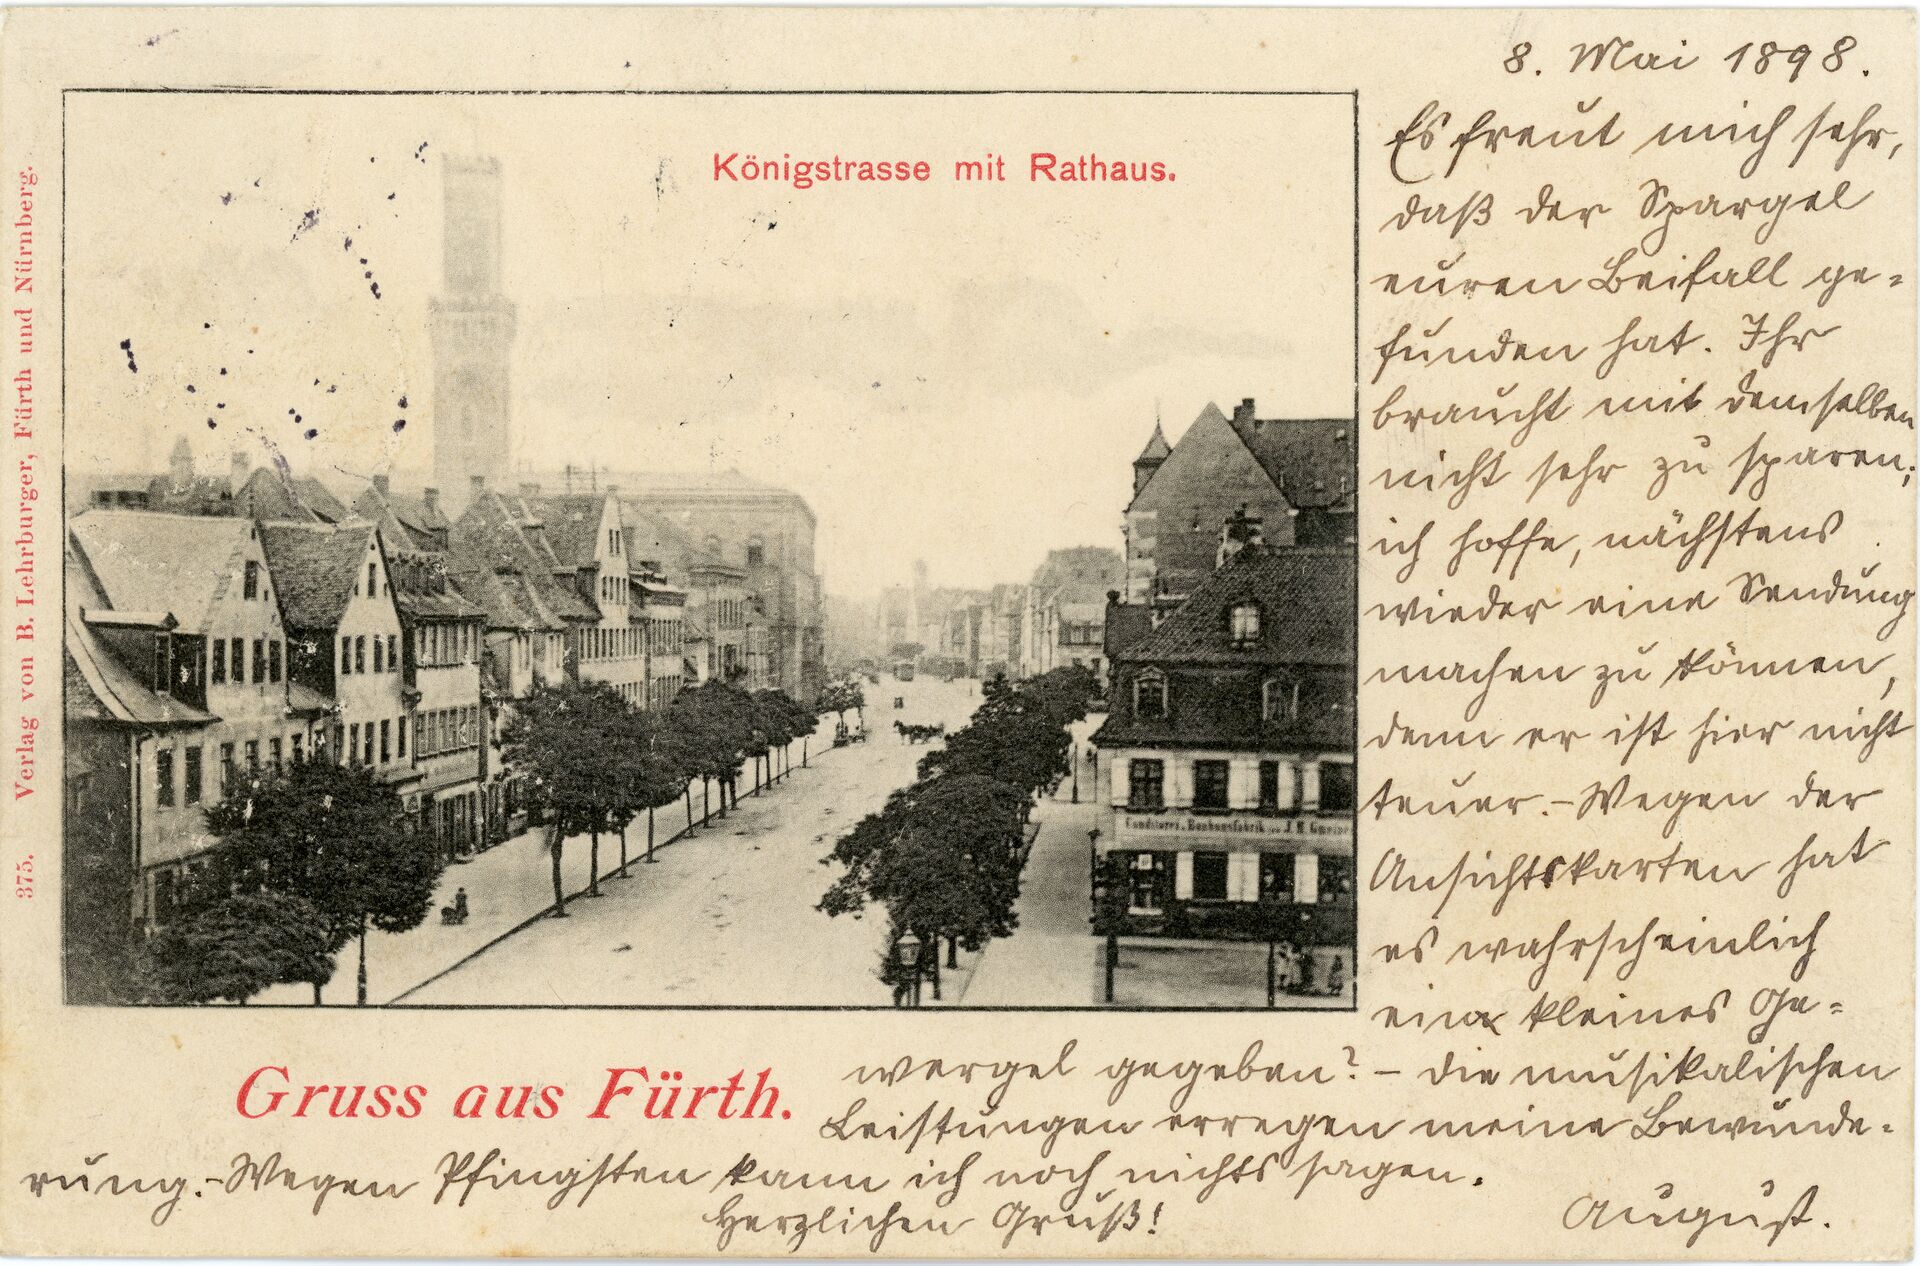 8. Mai 1898.
Königstrasse mit Rathaus.
Es freut mich sehr,
daß der Spargel
euren Beifall ge=
funden hat. Ihr
braucht mit demselben
nicht sehr zu sparen;
ich hoffe, nächstens
wieder eine Sendung
machen zu können,
denn er ist hier nicht
teuer.–Wegen der
Ansichtskarten hat
es wahrscheinlich
ein kleines Ge=
wergel gegeben? – Die musikalischen
Leistungen erregen meine Bewunde=
rung.–Wegen Pfingsten kann ich noch nichts sagen.
Herzlichen Gruß!
August.
Gruss aus Fürth.
375. Verlag von B. Lehrburger, Fürth und Nürnberg.